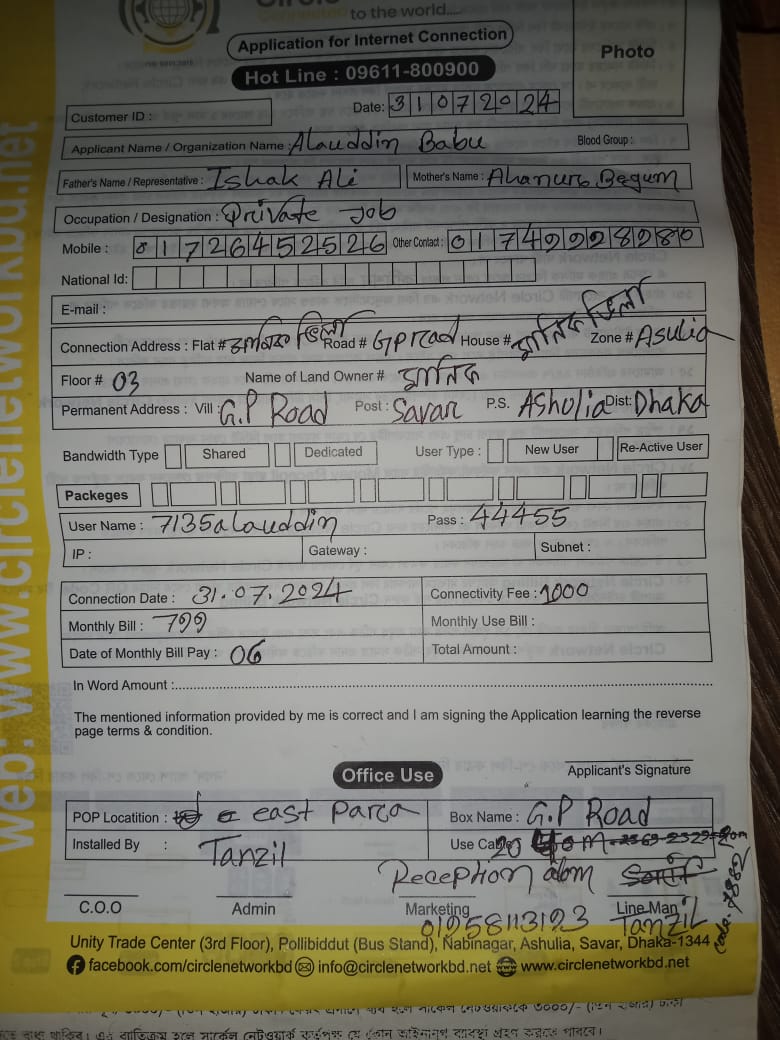 Circle
Connected to the world....
Application for Internet Connection
Hot Line : 09611-800900
Photo
Customer ID :
Date: 31072024
Applicant Name / Organization Name : Alauddin Babu Blood Group :
Father's Name / Representative : Ishak Ali Mother's Name : Ahanura Begum
Occupation / Designation : Private Job
Mobile : 01726452526 Other Contact : 01749998980
National Id:
E-mail :
Connection Address : Flat # Road # GP road House # মানিক ভিলা Zone # Asulia
Floor # 03 Name of Land Owner # মানিক
Permanent Address : Vill : G.P Road Post : Savar P.S. Ashulia Dist: Dhaka
Bandwidth Type Shared Dedicated User Type : New User Re-Active User
Packeges
User Name : 7135alauddin Pass : 44455
IP : Gateway : Subnet :
Connection Date : 31.07.2024 Connectivity Fee : 1000
Monthly Bill : 799 Monthly Use Bill :
Date of Monthly Bill Pay : 06 Total Amount :
In Word Amount :
The mentioned information provided by me is correct and I am signing the Application learning the reverse
page terms & condition.
Office Use
Applicant's Signature
POP Locatition : east Parca Box Name : G.P Road
Installed By : Tanzil Use Cable 20
Reception
C.O.O Admin Marketing Line Man
TANZIL
Unity Trade Center (3rd Floor), Pollibiddut (Bus Stand), Nabinagar, Ashulia, Savar, Dhaka-1344
facebook.com/circlenetworkbd info@circlenetworkbd.net www.circlenetworkbd.net
web: www.circlenetworkbd.net